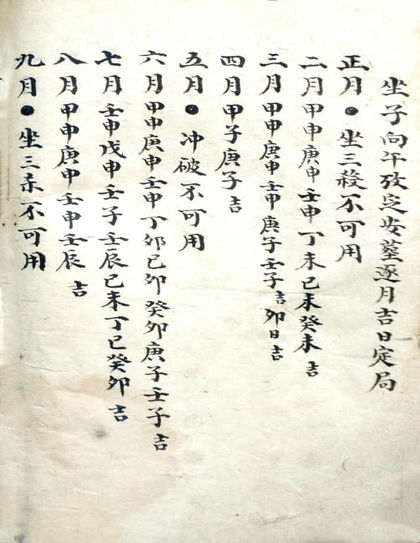 坐子向午改塟安墓逐月吉日定局
正月●坐三殺不可用
二月甲申庚申壬申丁未己未癸未吉
三月甲申庚申壬申庚子壬子吉卯日吉
四月甲子庚子吉
五月●冲破不可用
六月甲申庚申壬申丁卯己卯癸卯庚子壬子吉
七月壬申戊申壬子壬辰己未丁巳癸卯吉
八月甲申庚申壬申壬辰吉
九月●坐三杀不可用